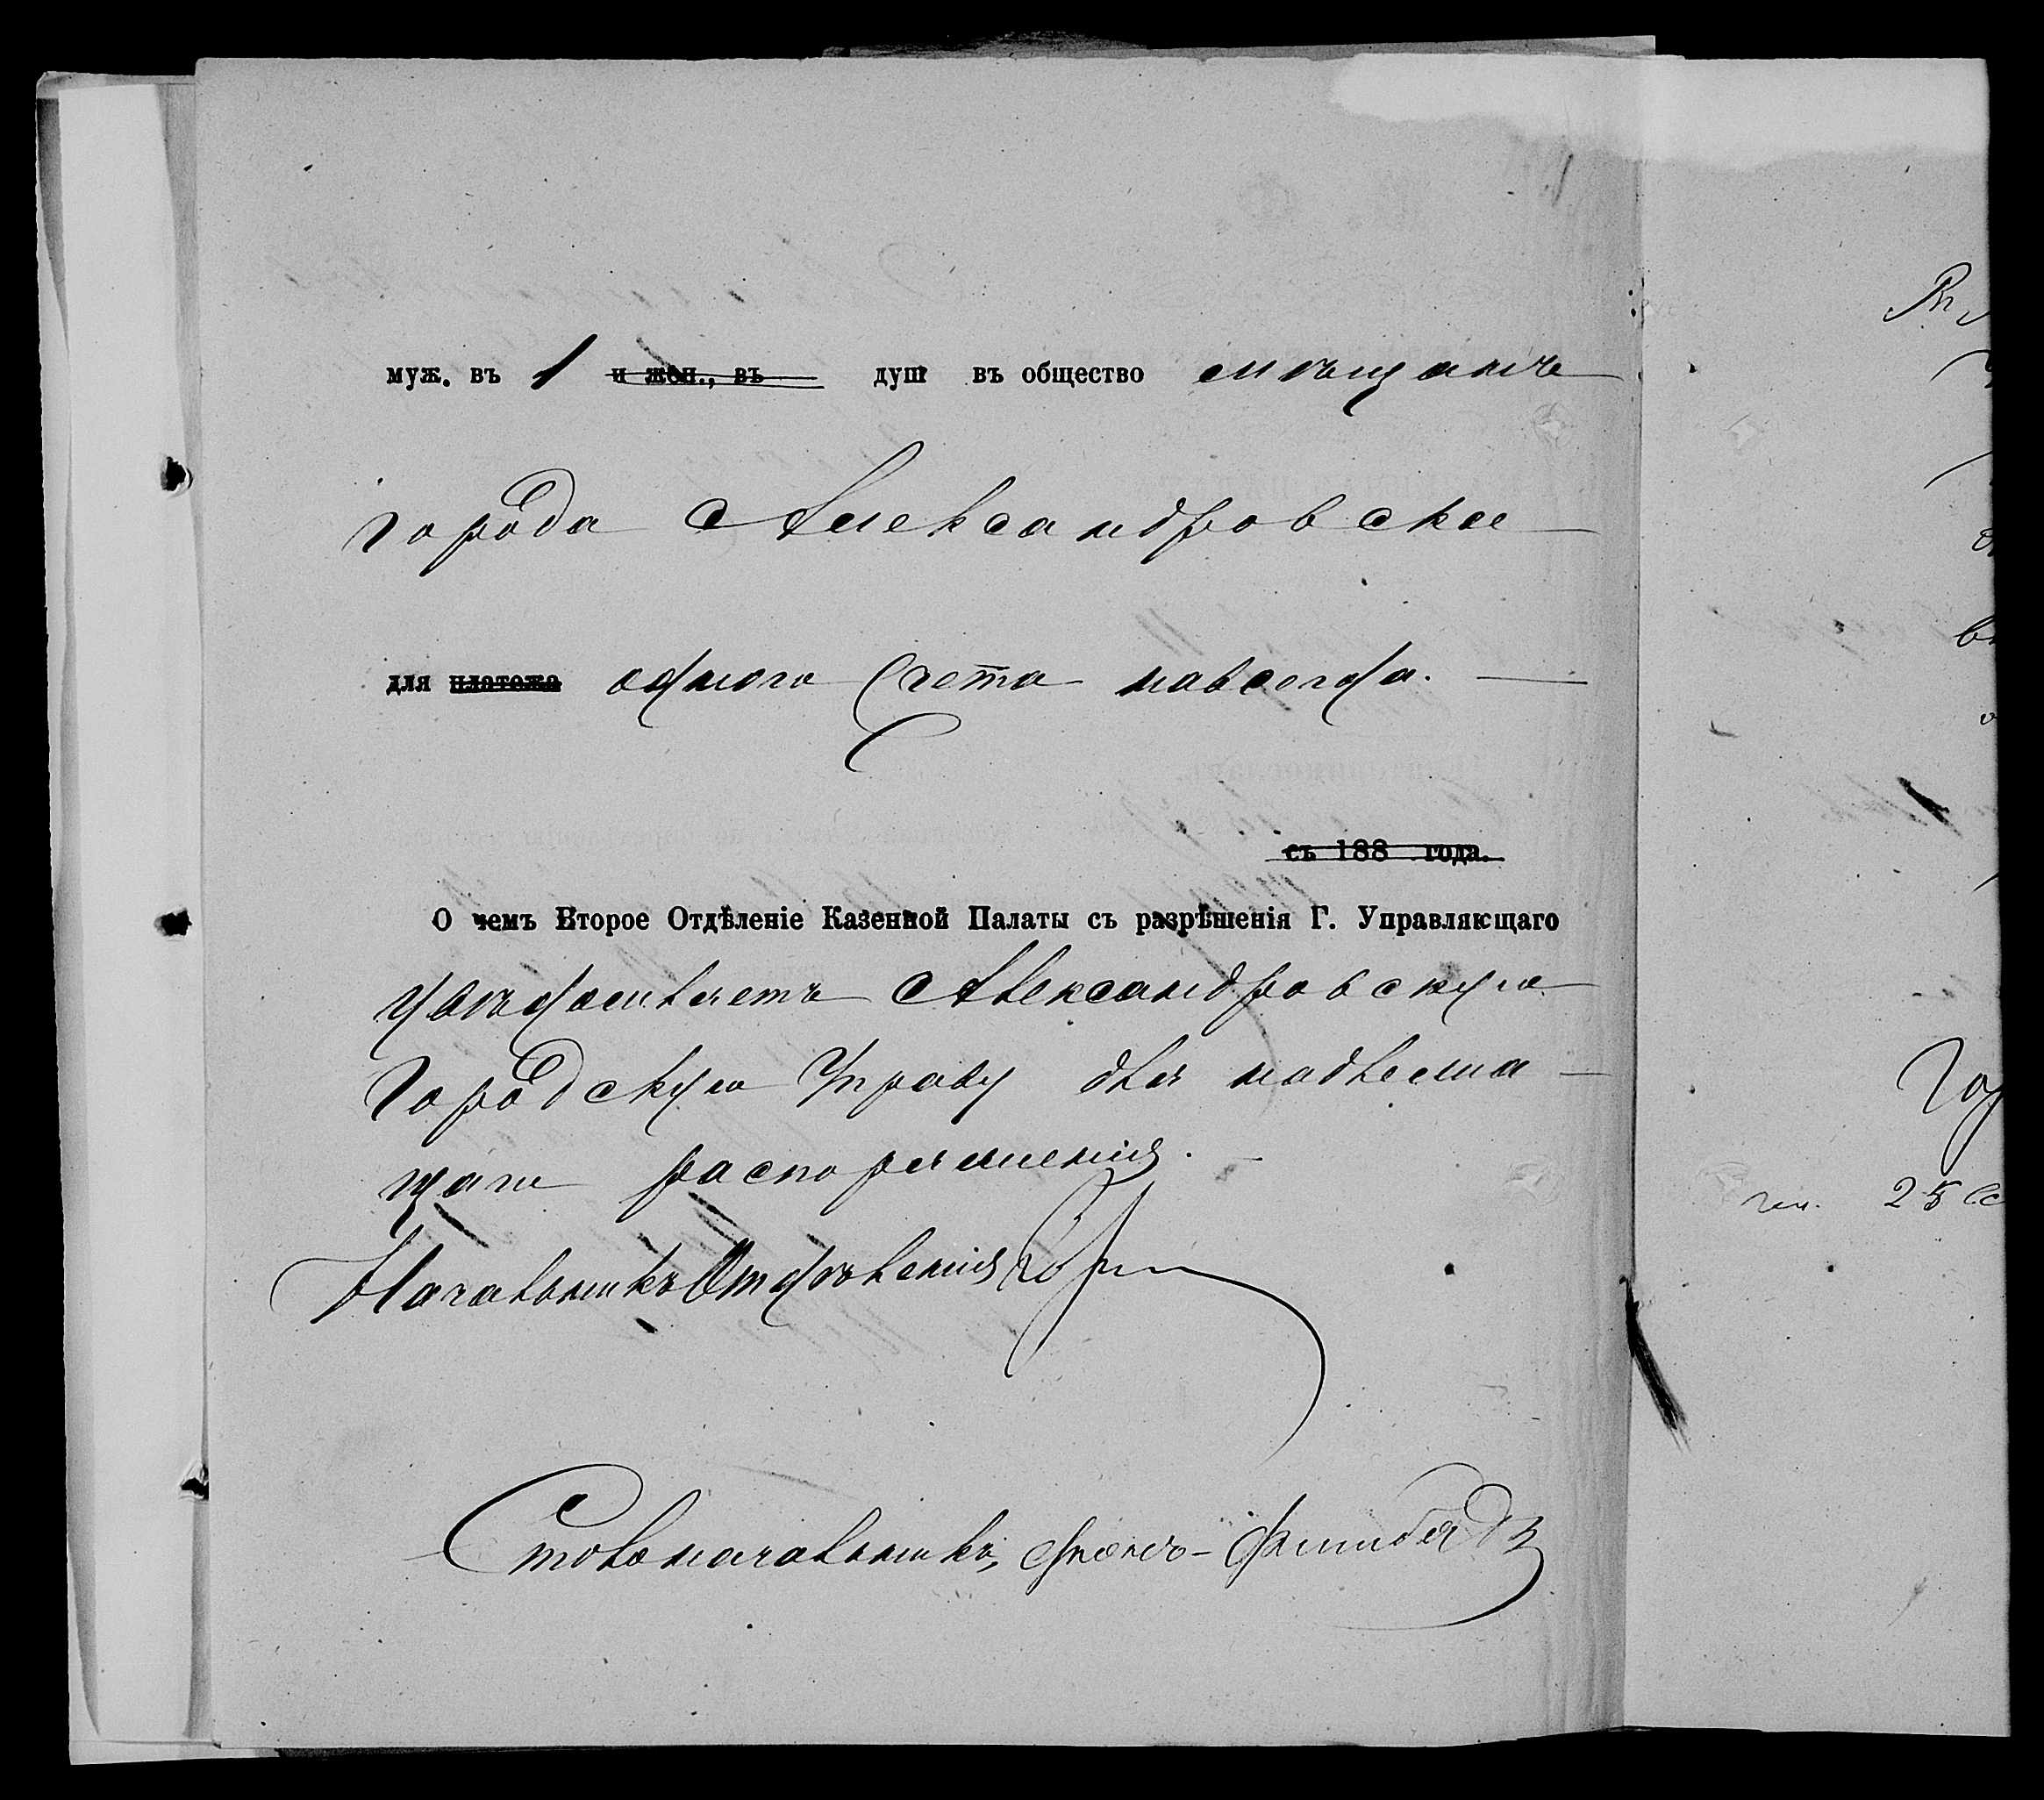 муж. въ 1 и жен., въ душ въ общество мѣщанъ
города Александровска
для платежа одного счета навсегда.
съ 188 года.
О чемъ Второе Отдѣленіе Казенной Палаты съ разрѣшенія Г. Управляющаго
увѣдомляетъ Александровскую
Городскую Управу для надлежа-
щаго распоряженія.
Начальникъ Отдѣленія
Столоначальникъ, фонъ-
Го
25